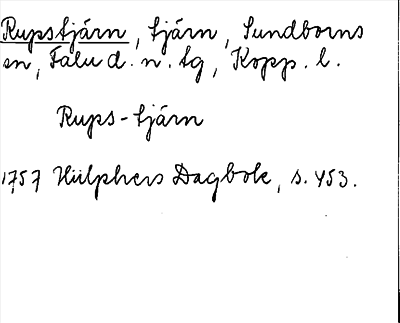 Rupstjärn, tjärn, Sundborns
sn, Falu d. n. tg, Kopp. l.
Rups-tjärn
1757 Hülphers Dagbok, s. 453.